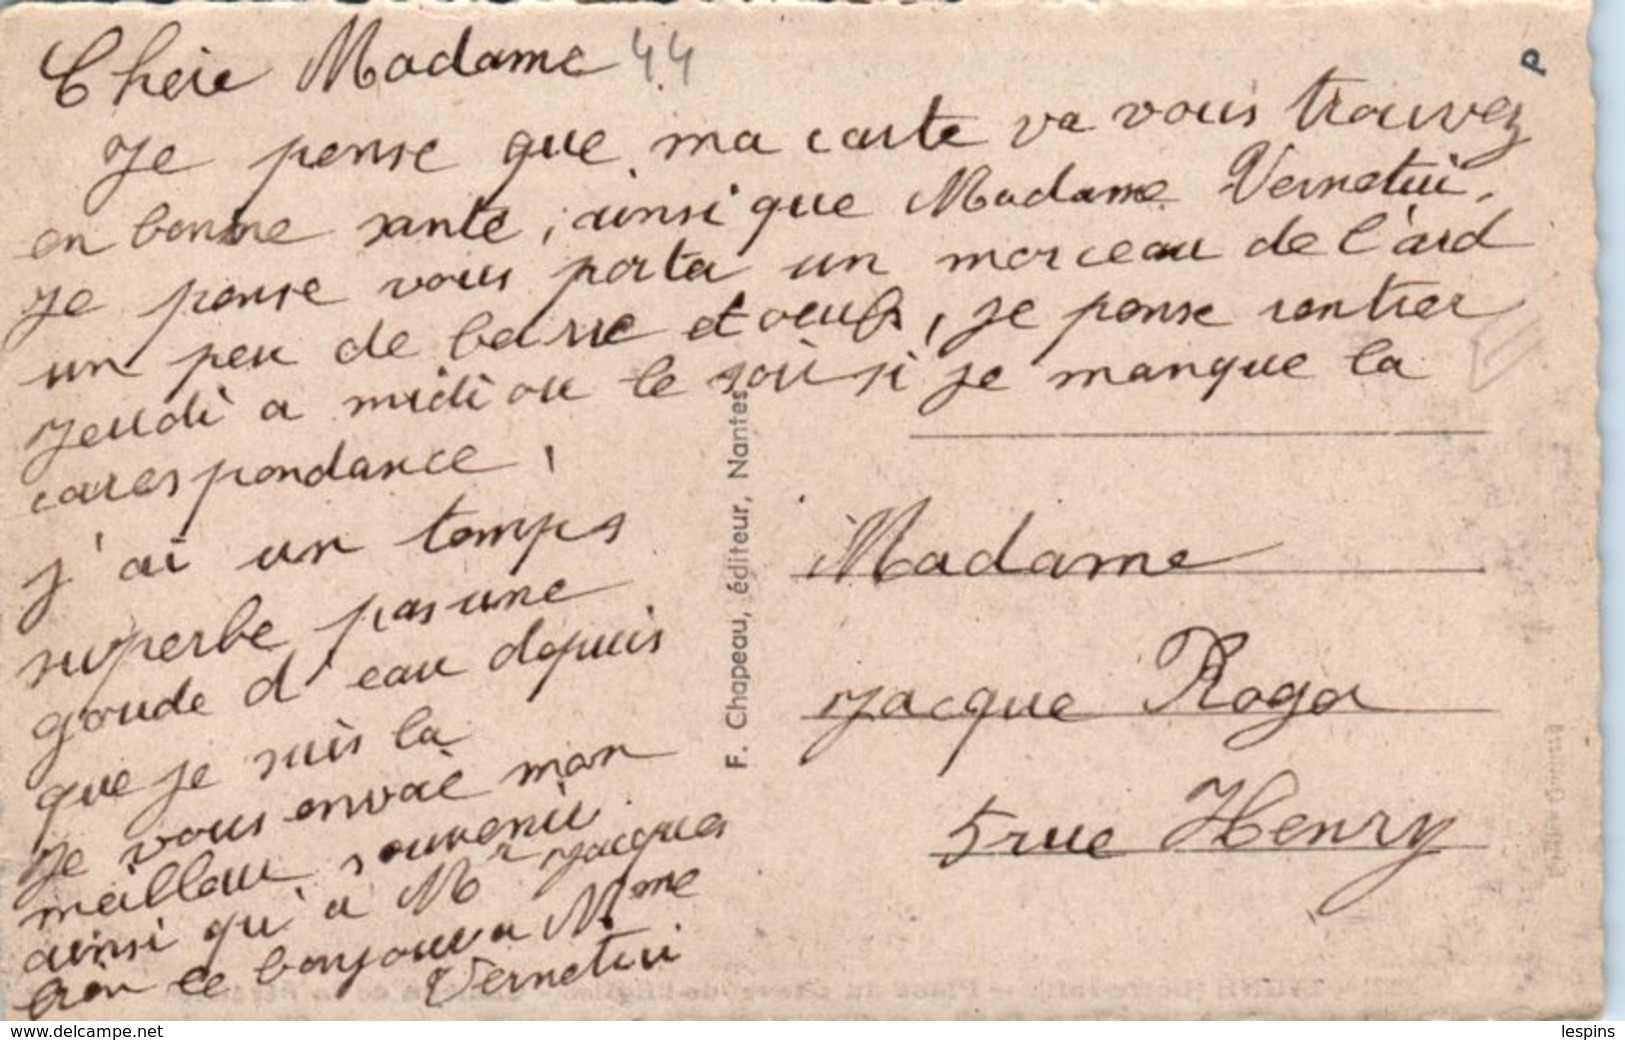 Cheie Madame 44
P
Je pense que ma carte va vous trouvez
en bonne sante, ainsi que Madame Vernetui,
Je pense vous porter un morceau de l'ard
un peu de berre et oeufs, je pense rentrer
Jeudi a midi ou le soir si je manque la
carespondance,
j'ai un temps
superbe pas une
goude d'eau depuis
que je suis la
Je vous envoie mon
meilleur souvenir
ainsi qu'a Mr Jacques
bien le bonjour a Mme
Vernetui
F. Chapeau, éditeur, Nantes
Madame
Jacque Roger
5 rue Henry
www.delcampe.net
lespins